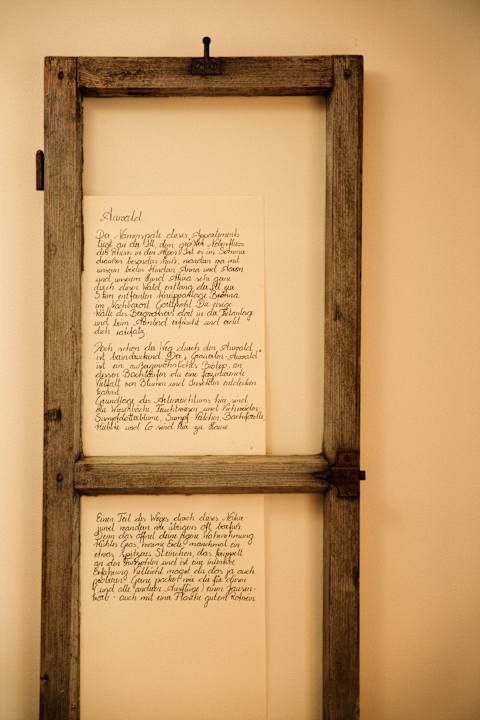 Auwald
Der Namenspate dieses Appartements
liegt an der Ill, dem größten Nebenfluss
des Rheins in den Alpen. Ist es im Sommer
draußen besonders heiß, wandern wir mit
unseren beiden Kindern Anna und Aaron
und unserem Hund Akira sehr gerne
durch diesen Wald entlang der Ill zur
5 km entfernten Kneippanlage Bröma
im Nachbarort Gottfröhl. Die eisige
Kälte des Bergwassers dort in der Tretanlage
und beim Armbad erfrischt und
dich
Doch schon der Weg durch den Auwald
ist beeindruckend. Der Auwald
ist ein außergewöhnliches Biotop, an
dessen Bachläufen du eine faszinierende
Vielfalt von Blumen und Insekten entdecken
kannst.
Grundlage des Artenreichtums hier sind
die Waschbäche, Feuchtwiesen und
Sumpfdotterblume, Sumpf-Veilchen, Bachforelle,
und Co sind hier zu Hause.
Einen Teil des Weges durch dieses Natur-
juwel wandern wir übrigens oft barfuß.
Denn das öffnet deine eigene Wahrnehmung.
Kühles Gras, warme Erde, manchmal ein
etwas spitzeres Steinchen, das kribbelt
an den Fußsohlen und ist eine intensive
Erfahrung. Vielleicht magst du das ja auch
probieren? Ganz packen wir dir für diesen
(und alle anderen Ausflüge) einen Jausen-
korb - auch mit einer Flasche gutem Rotwein.